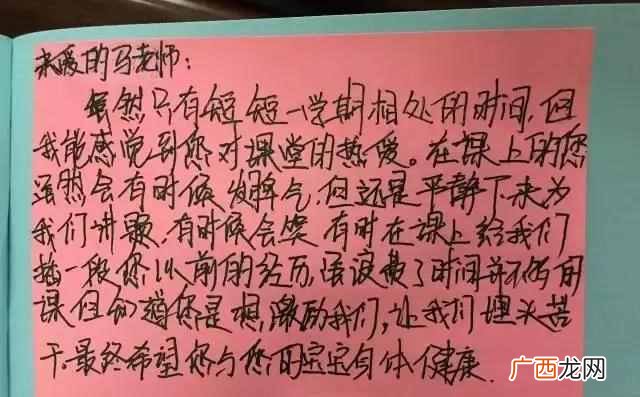 亲爱的马老师：
虽然只有短短一学期相处的时间，但
我能感觉到您对课堂的热爱。在课上的您
虽然会有时候发脾气，但还是平静下来为
我们讲题，有时候会笑 有时在课上给我们
插一段您以前的经历，浪费了时间并不
课但知道您是想激励我们，让我们埋头苦
干.最终希望您与您的宝宝身体健康.
广西龙网